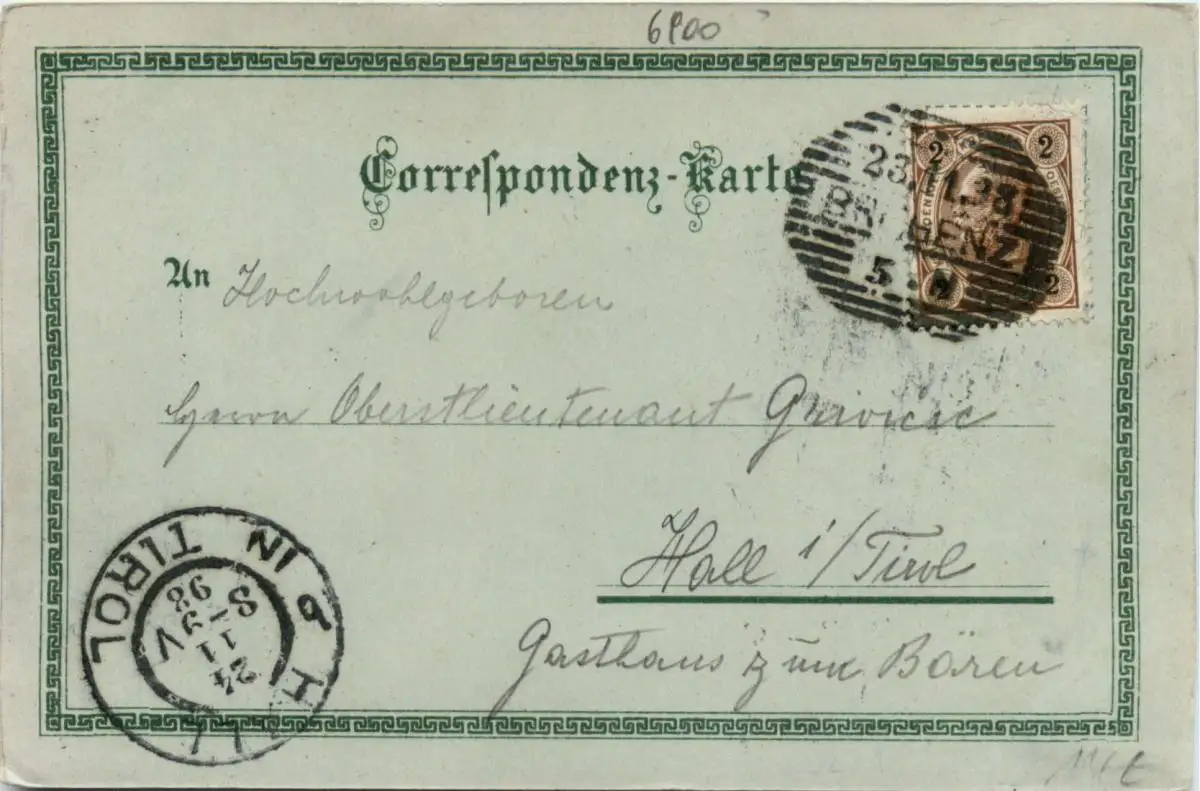 6900
Correspondenz-Karte
2 2
23.11.98
BREGENZ
5
2 2
An Hochwohlgeboren
Herrn Oberstlieutenant
Hall i/Tirol
Gasthaus zum Bären
HALL IN TIROL
24
11
8-9V
98